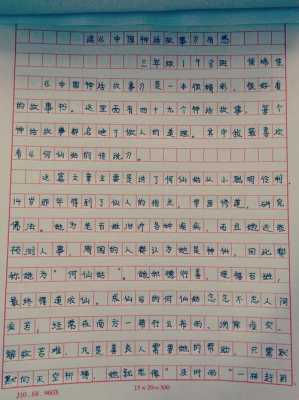 读《中国神话故事》有感
三年级1
《中国神话故事》是一本很精彩,很好看
的故事书。这里面有四十九个神话故事,每个
神话故事都启迪了做人的道理。其中我最喜欢
看《何仙姑的传说》。
这篇文章主要是讲了何仙姑从小聪明伶俐,
14岁那年得到了仙人的指点,常居修道,研究
佛法。她为老百姓治疗各种疾病,而且她还能
预测人事,周围的人都认为她是神仙,因此都
称她为“何仙姑”。她积德行善,受得百姓,
最终得道成仙。成仙后的何仙姑念念不忘人间
疾苦,经常在南方一带行云布雨、消除疫灾、
解救苦难,凡是善良人需要她的帮助,只需默
默的天空祈祷,她就会像“及时雨”一样赶到
15×20=300